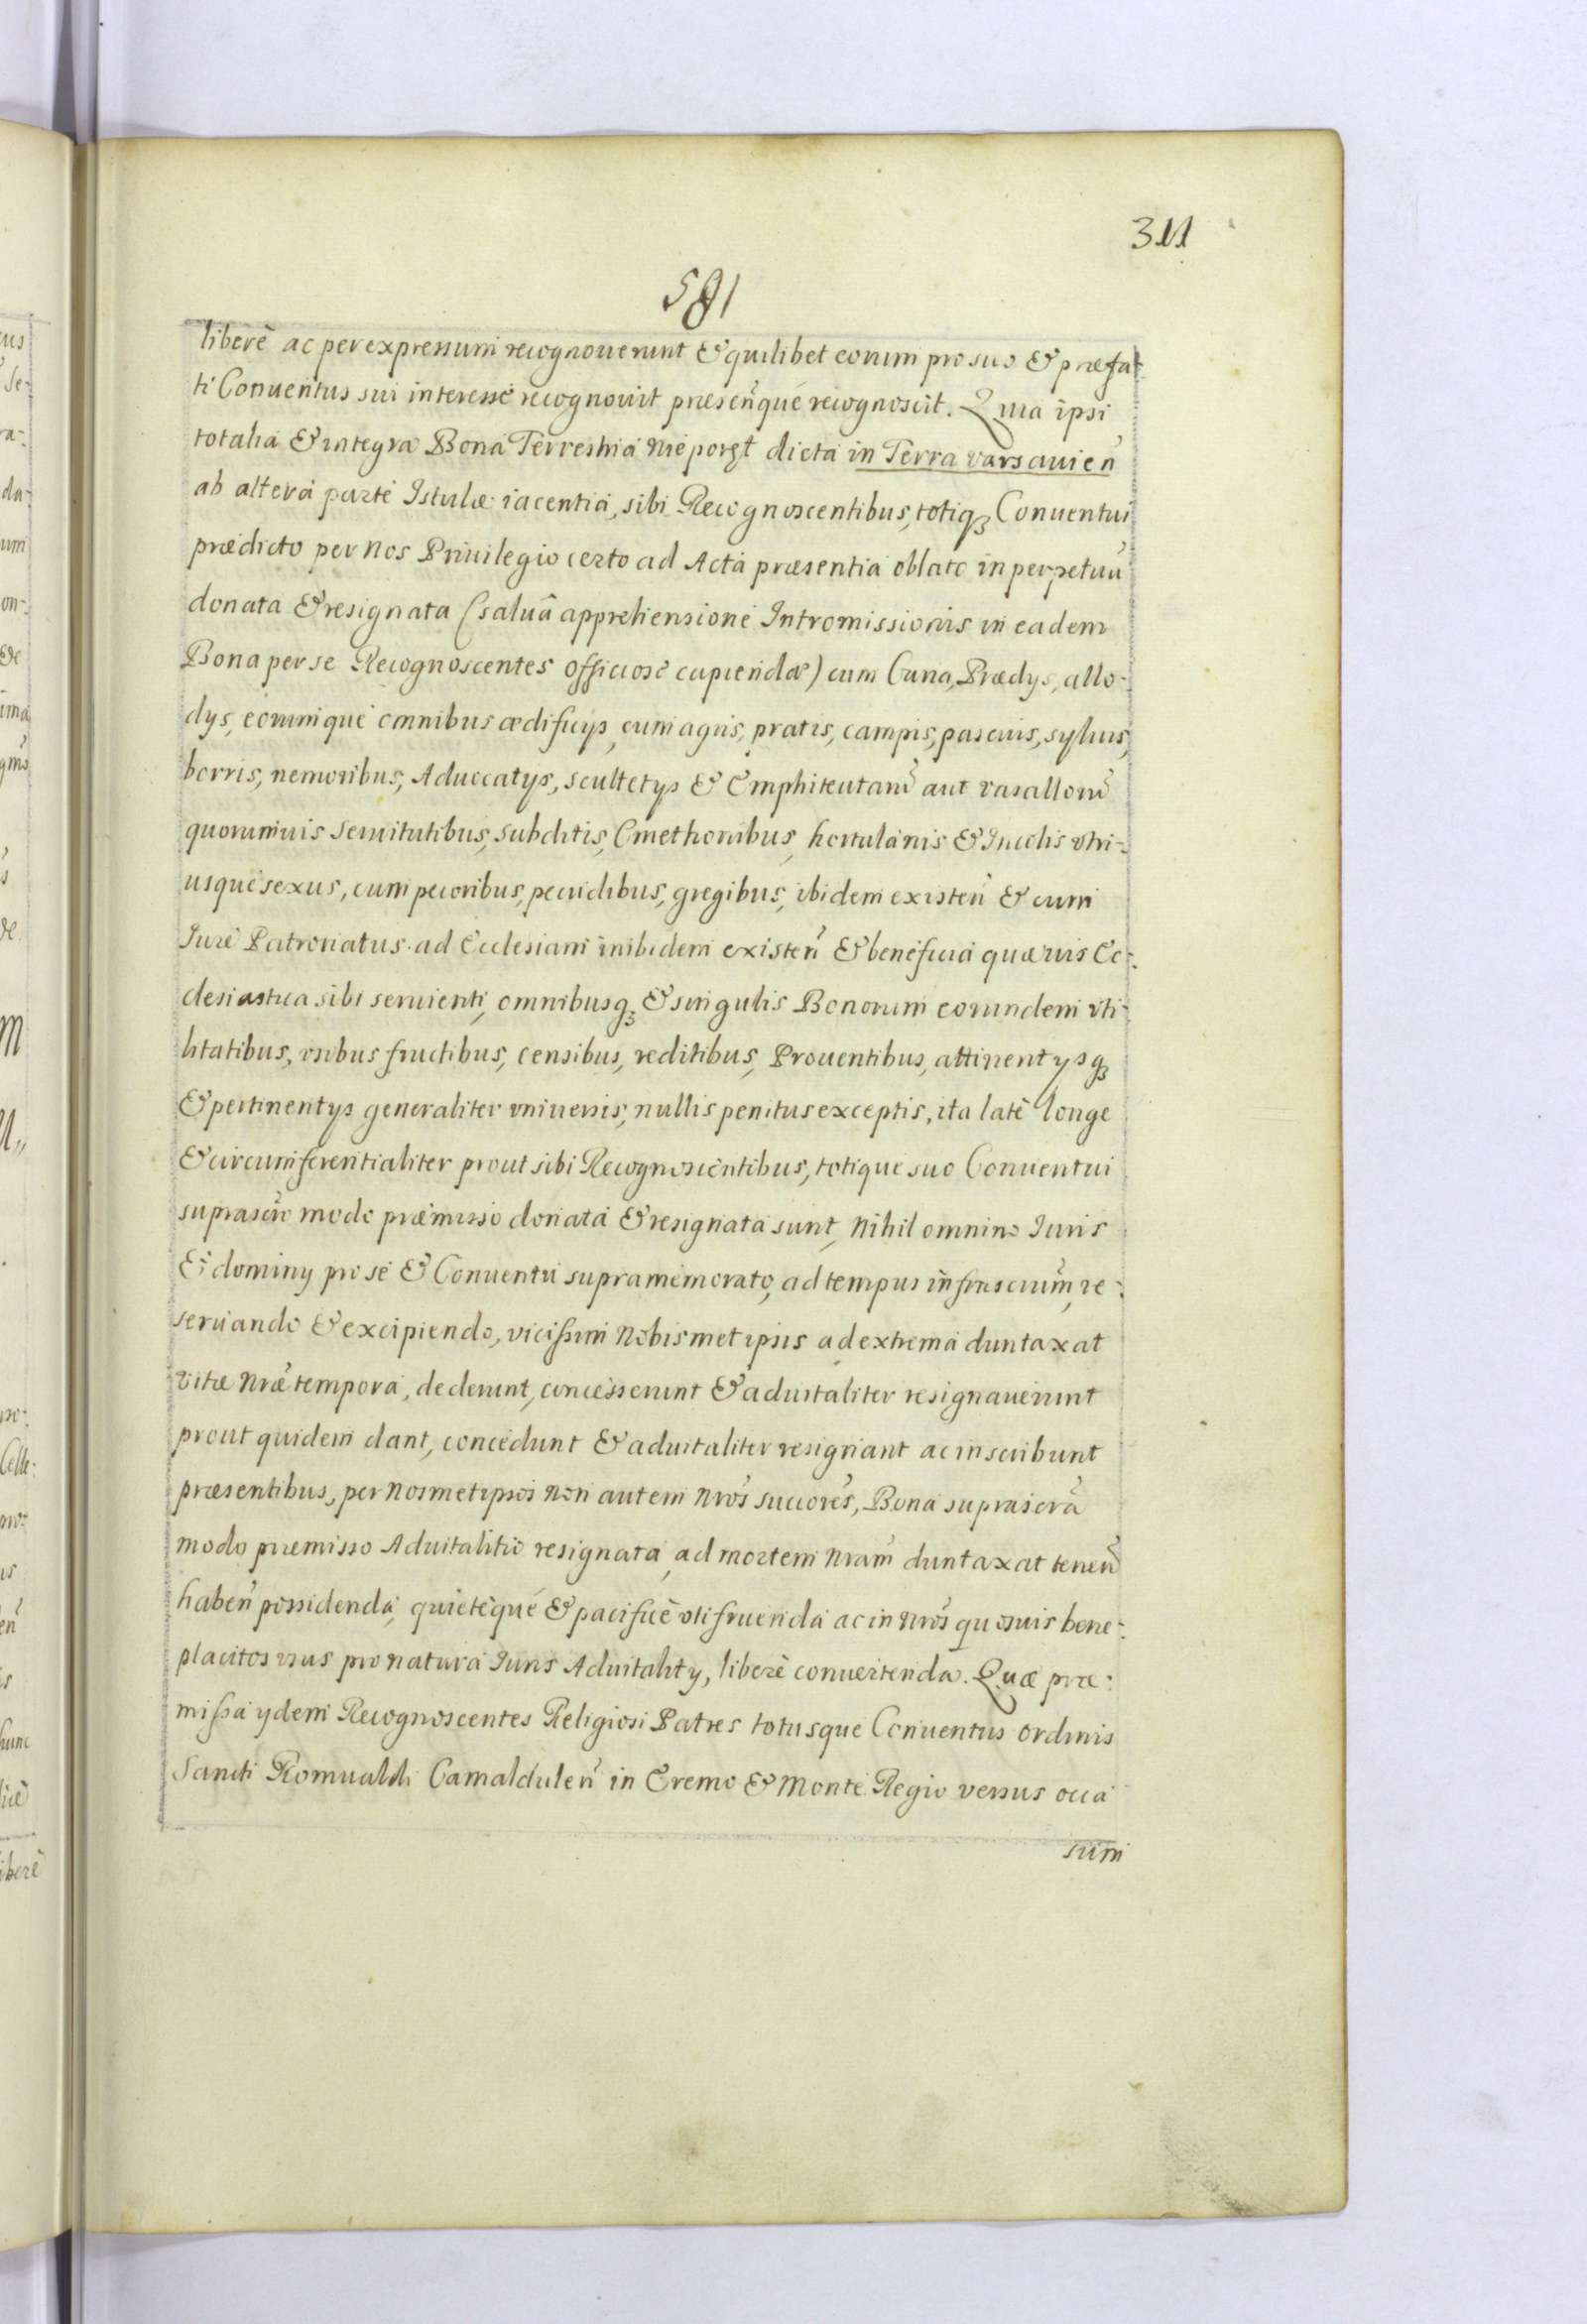 311
581
liberè ac per expressum recognouerunt & quilibet eorum pro suo & præfa-
ti Conuentus sui interesse recognouit præsen̄que recognoscit. Quia ipsi
totalia & integra Bona Terrestria Nieporęt dicta in Terra varsauien̄
ab altera parte Istulæ iacentia, sibi Recognoscentibus, totiqꝫ Conuentui
prædicto per Nos Priuilegio certo ad Acta præsentia oblato in perpetuū
donata & resignata (saluâ apprehensione Intromissionis in eadem
Bona per se Recognoscentes officiosè capiendæ) cum Curia, Prædys, allo-
dys, eorumque omnibus ædificys, cum agris, pratis, campis, pascuis, syluis,
borris, nemoribus, Aduocatys, scultetys & Emphiteutarū aut vasallorū
quorumuis seruitutibus, subditis, Cmethonibus, hortulanis & Incolis vtri-
usque sexus, cum pecoribus, pecudibus, gregibus, ibidem existen̄ & cum
Iure Patronatus ad Ecclesiam inibidem existen̄ & beneficia quæuis Ec-
clesiastica sibi seruienti, omnibusqꝫ & singulis Bonorum eorundem vti-
litatibus, vsibus fructibus, censibus, reditibus, Prouentibus, attinentysqꝫ
& pertinentys generaliter vniuersis, nullis penitus exceptis, ita latè longe
& circumferentialiter prout sibi Recognoscentibus, totique suo Conuentui
suprascr̄o modo præmisso donata & resignata sunt, Nihil omnino Iuris
Et dominy pro se & Conuentu supramemorato, ad tempus infrascrium̄, re-
seruando & excipiendo, vicissim Nobismet ipsis ad extrema duntaxat
vitæ Nr̄æ tempora, dederunt, concesserunt & aduitaliter resignauerunt
prout quidem dant, concedunt & aduitaliter resignant ac inscribunt
præsentibus, per Nosmetipsos Non autem Nr̄os succores̄, Bona suprascr̄a
modo præmisso Aduitalitio resignata, ad mortem Nram̄ duntaxat tenen̄
haben̄ possidenda, quietèque & pacificè vtifruenda ac in Nr̄os quosuis bene-
placitos vsus pro natura Iuris Aduitality, liberè conuertenda. Quæ præ-
missa ydem Recognoscentes Religiosi Patres totusque Conuentus Ordinis
Sancti Romualdi Camaldulen̄ in Eremo & Monte Regio versus occa
sum